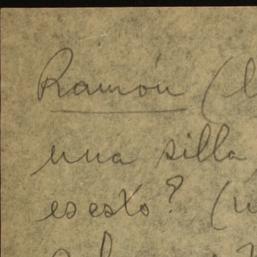 Ramón (
una silla
es esto? (